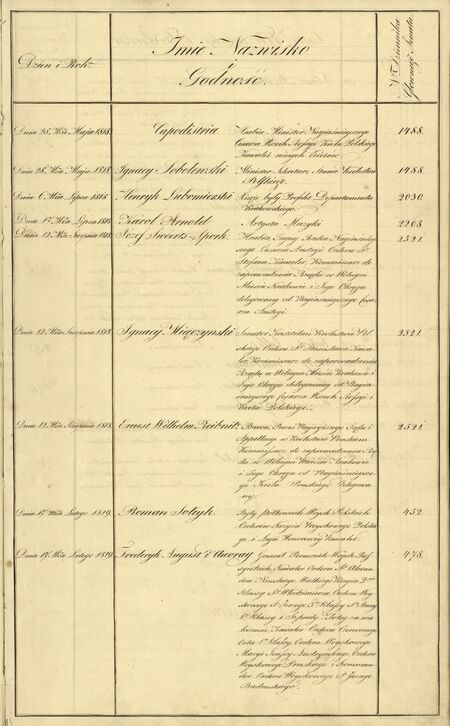 Dzień i Rok.
Imie Nazwisko
i
Godność.
N. Dziennika
Głównego Senatu.
Dnia 28. Mca Maja 1818.
Capodistria
Hrabia Minister Nayjaśnieyszego
Cesarza Wszech Rossyi Króla Polskiego
Kawaler różnych Orderów
1488.
Dnia 28. Mca Maja 1818.
Ignacy Sobolewski
Minister Sekretarz Stanu Królestwa
Polskiego.
1488.
Dnia 6. Mca Lipca 1818
Henryk Lubomirski
Xiąże były Prefekt Departamentu
Krakowskiego.
2030.
Dnia Mca Lipca 1818
Karol Arnold
Artysta Muzyki
2205.
Dnia 12. Mca Sierpnia 1818.
Józef Sweerts-Spork.
Hrabia, Tayny Radca Nayjaśniey
szego Cesarza Austryi, Orderu Śgo
Stefana Kawaler, Kommissarz do
zaprowadzenia Rządu w Wolnym
Mieście Krakowie i Jego Okręgu
delegowany od Nayjaśnieyszego Cesa
rza Austryi.
2521.
Dnia 12. Mca Sierpnia 1818.
Ignacy Miączynski
Senator Kasztelan Królestwa Pol
skiego Orderu Śgo Stanisława Kawa
ler, Kommissarz do zaprowadzenia
Rządu w Wolnym Mieście Krakowie i
Jego Okręgu delegowany od Nayja
śnieyszego Cesarza Wszech Rossyi i
Króla Polskiego.
2521.
Dnia 12. Mca Sierpnia 1818.
Ernest Wilhelm Reibnitz
Baron, Prezes Naywyższego Sądu
Appellacyi w Królestwie Pruskim
Kommissarz do zaprowadzenia Rzą
du w Wolnym Mieście Krakowie
i Jego Okręgu od Nayjaśnieysze
go Króla Pruskiego Delegowa
ny.
2521.
Dnia Mca Lutego 1819.
Roman Sołtyk.
Były Półkownik Woysk Polskich
Orderów Krzyża Woyskowego Polskie
go i Legii Honorowey Kawaler.
452.
Dnia 17. Mca Lutego 1819.
Frederyk August d'Auvray
Generał Porucznik Woysk Ros
syiskich, Kawaler Orderu Śgo Alexan
dra Newskiego, Wielkiego Krzyża 2giey
Klassy Śgo Włodzimierza, Orderu Woy
skowego Śgo Jerzego 3. Klassy Śtey Anny
1. Klassy i Szpady Złotey za wa
leczność, Kawaler Orderu Czerwonego
Orła 1. Klassy, Orderu Woyskowego
Maryi Teressy Austryackiego, Orderu
Woyskowego Pruskiego i Komman
dor Orderu Woyskowego Śgo Jerzego
Badenskiego.
478.